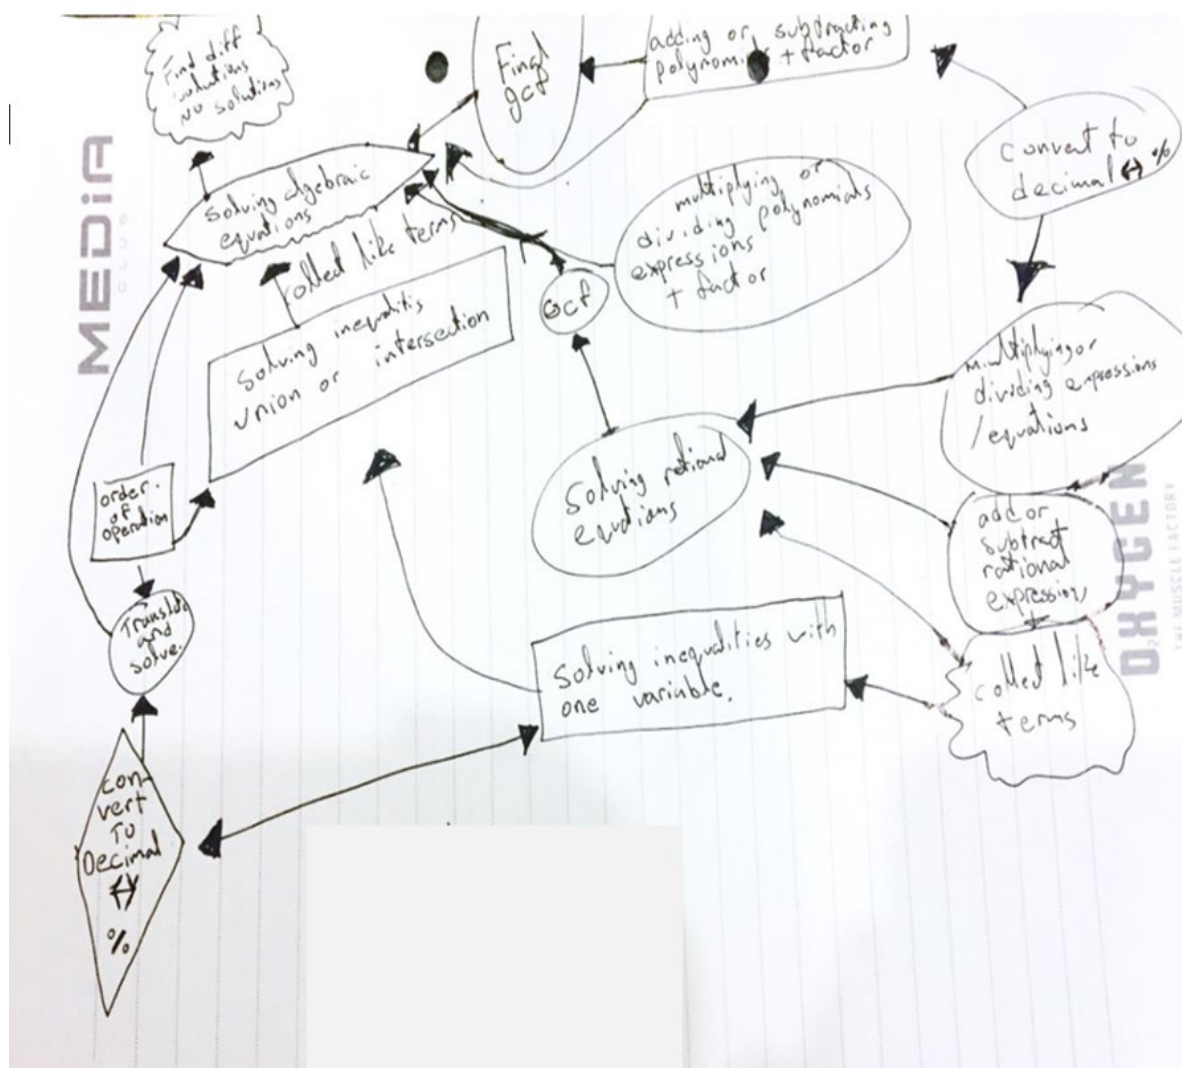 Find diff
solutions
NO solutions
Final
gcf
adding or subtracting
polynomials + factor
convert to
decimal <-> %
MEDiA
CLUB
Solving algebraic
equations
collect like terms
multiplying or
dividing polynomials
expressions
+ factor
GCF
Solving inequalitis
union or intersection
multiplying or
dividing expressions
/equations
Solving rational
equations
order
of
operation
add or
subtract
rational
expressions
OXYGEN
THE MUSCLE FACTORY
Translate
and
solve.
Solving inequalities with
one variable.
collect like
terms
con-
vert
To
Decimal
<->
%